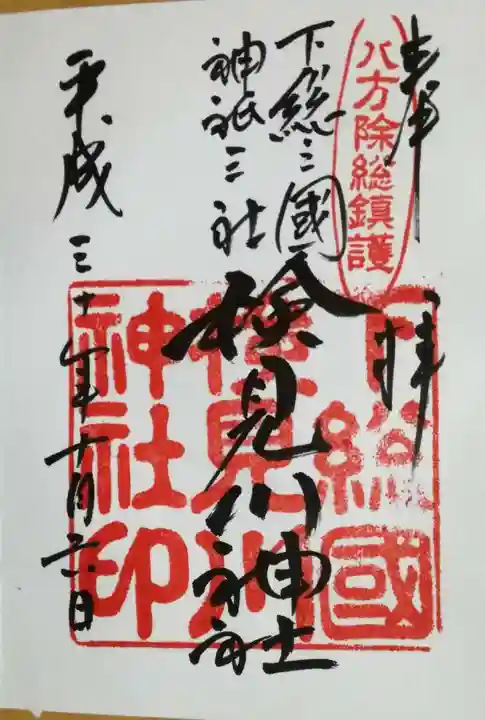 奉拝
八方除総鎮護
下総三國
神祇三社
検見川神社
平成三十年十一月六日
下総國
検見川
神社印